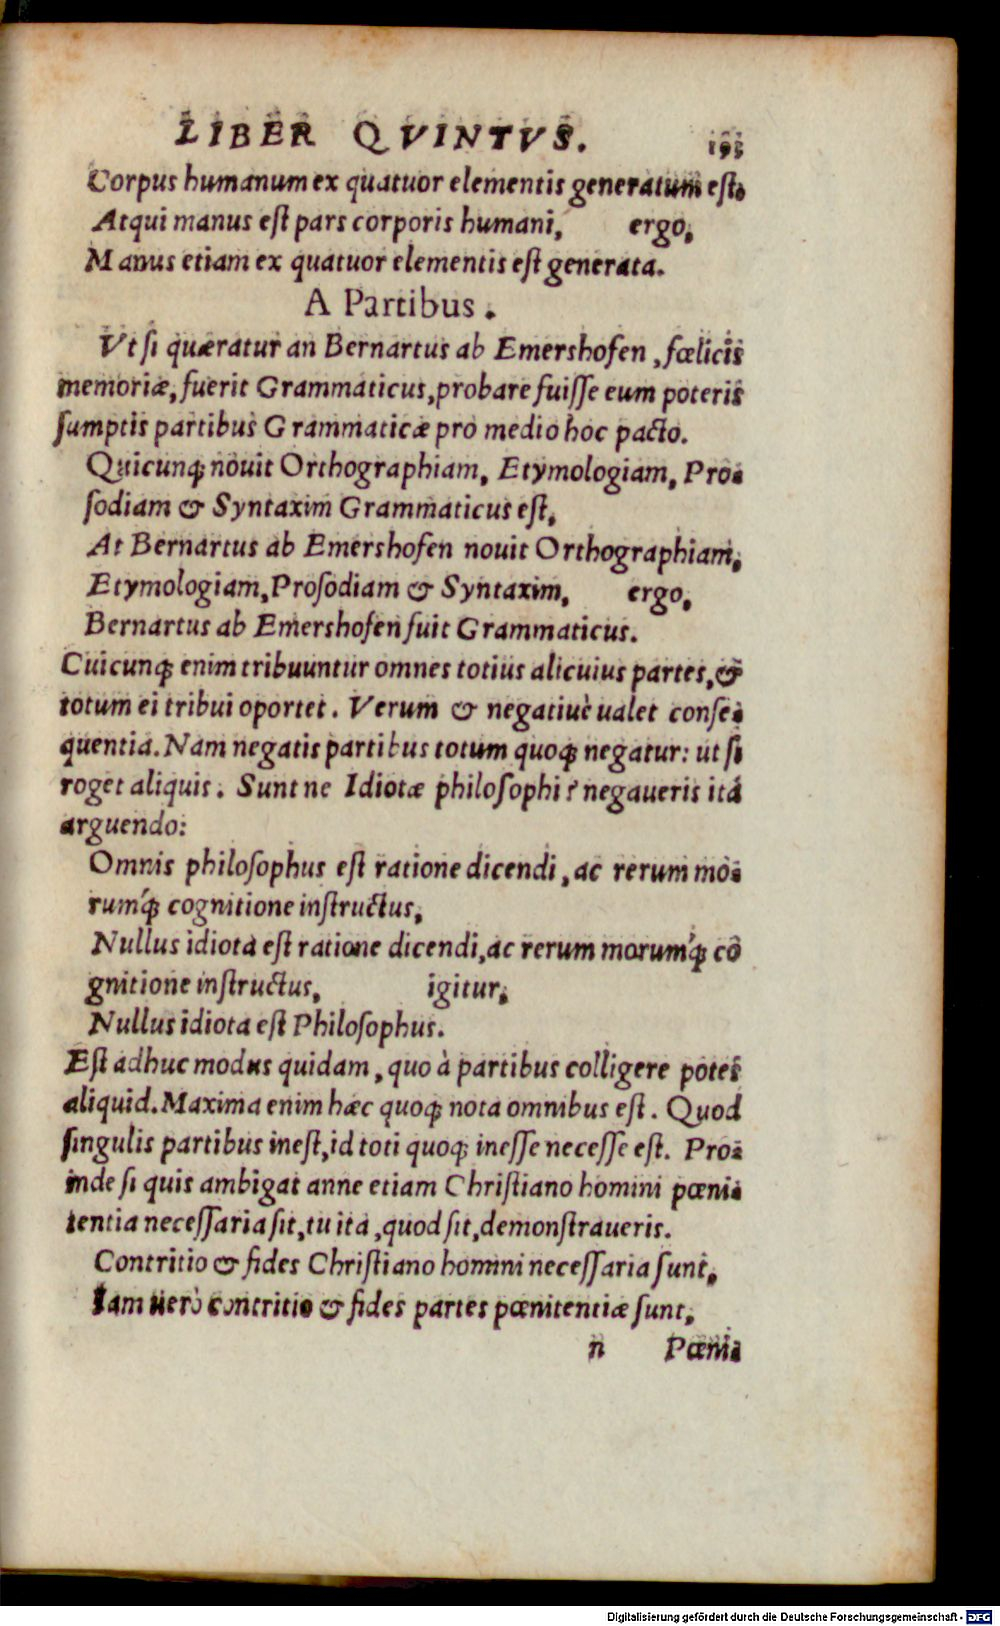 LIBER QVINTVS. 193
Corpus humanum ex quatuor elementis generatum est,
Atqui manus est pars corporis humani, ergo,
Manus etiam ex quatuor elementis est generata.
A Partibus.
Vt si quæratur an Bernartus ab Emershofen, fœlicis
memoriæ, fuerit Grammaticus, probare fuisse eum poteris
sumptis partibus Grammaticæ pro medio hoc pacto.
Quicunq; nouit Orthographiam, Etymologiam, Pro-
sodiam & Syntaxim Grammaticus est,
At Bernartus ab Emershofen nouit Orthographiam,
Etymologiam, Prosodiam & Syntaxim, ergo,
Bernartus ab Emershofen fuit Grammaticus.
Cuicunq; enim tribuuntur omnes totius alicuius partes, &
totum ei tribui oportet. Verum & negatiuè ualet conse-
quentia. Nam negatis partibus totum quoq; negatur: ut si
roget aliquis. Sunt ne Idiotæ philosophi? negaueris itá
arguendo:
Omnis philosophus est ratione dicendi, ac rerum mo-
rumq́; cognitione instructus,
Nullus idiota est ratione dicendi, ac rerum morumq́; co
gnitione instructus, igitur,
Nullus idiota est Philosophus.
Est adhuc modus quidam, quo à partibus colligere potes
aliquid. Maxima enim hæc quoq; nota omnibus est. Quod
singulis partibus inest, id toti quoq; inesse necesse est. Pro-
inde si quis ambigat anne etiam Christiano homini pœni-
tentia necessaria sit, tu ita, quod sit, demonstraueris.
Contritio & fides Christiano homini necessaria sunt,
Iam uerò contritio & fides partes pœnitentiæ sunt,
n Pœni-
Digitalisierung gefördert durch die Deutsche Forschungsgemeinschaft - DFG